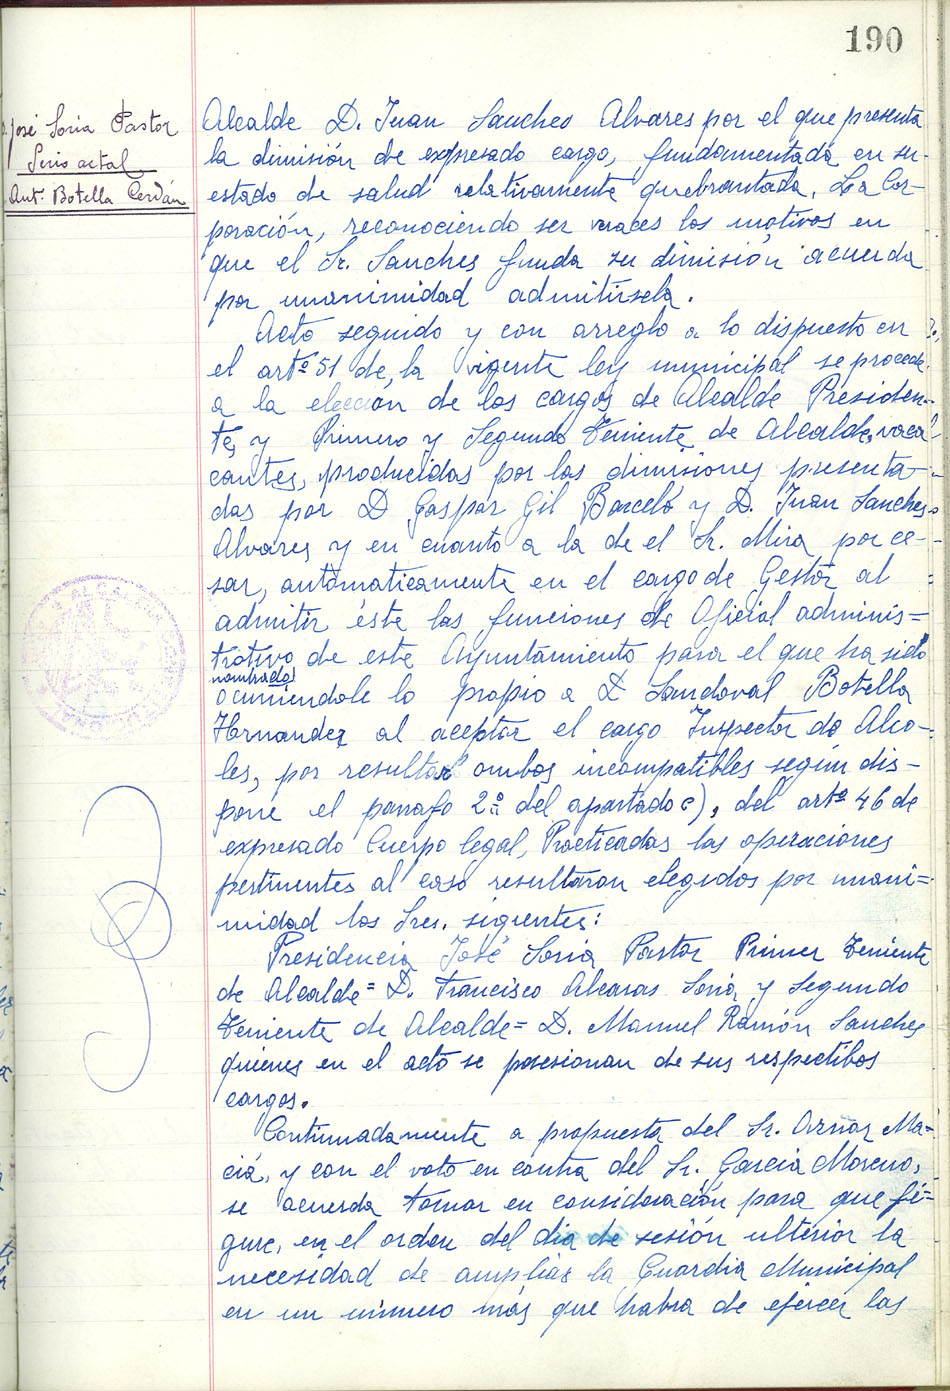 190
José Soria Pastor
Srio actal
Ant. Botella Cerdán
Alcalde D. Juan Sanchez Alvares por el que presenta
la dimisión de expresado cargo, fundamentada en su
estado de salud relativamente quebrantada. La Cor-
poración, reconociendo ser veraces los motivos en
que el Sr. Sanches funda su dimisión acuerda
por unanimidad admitirsela.
Acto seguido y con arreglo a lo dispuesto en
el artº 51 de la vigente ley municipal se procede
a la elección de los cargos de Alcalde Presiden-
te, y Primero y Segundo Teniente de Alcalde, vaca
cantes, producidas por las dimisiones presenta-
das por D Gaspar Gil Barceló y D. Juan Sanches
Alvares, y en cuanto a la de el Sr. Mira por ce-
sar, automaticamente en el cargo de Gestor al
admitir éste las funciones de Oficial adminis=
trativo de este Ayuntamiento para el que ha sido
nombrado
ocurriendole lo propio a D Sandoval Botella
Hernandez al aceptar el cargo Inspector de Alco-
les, por resultar ambos incompatibles según dis-
pone el parrafo 2º del apartado c), del artº 46 de
expresado Cuerpo legal, Practicadas las operaciones
pertinentes al caso resultaron elegidos por unani=
midad los Sres. sigientes:
Presidencia José Soria Pastor Primer Teniente
de Alcalde= D. Francisco Alcaras Soria y Segundo
Teniente de Alcalde= D. Manuel Ramón Sanches
quienes en el acto se posesionan de sus respectibos
cargos.
Continuadamente a propuesta del Sr. Aznar Ma-
ciá, y con el voto en contra del Sr. Garcia Moreno,
se acuerda tomar en consideración para que fi=
gure, en el orden del dia de sesión ulterior la
necesidad de amplias la Guardia Municipal
en un número más que habra de ejercer las